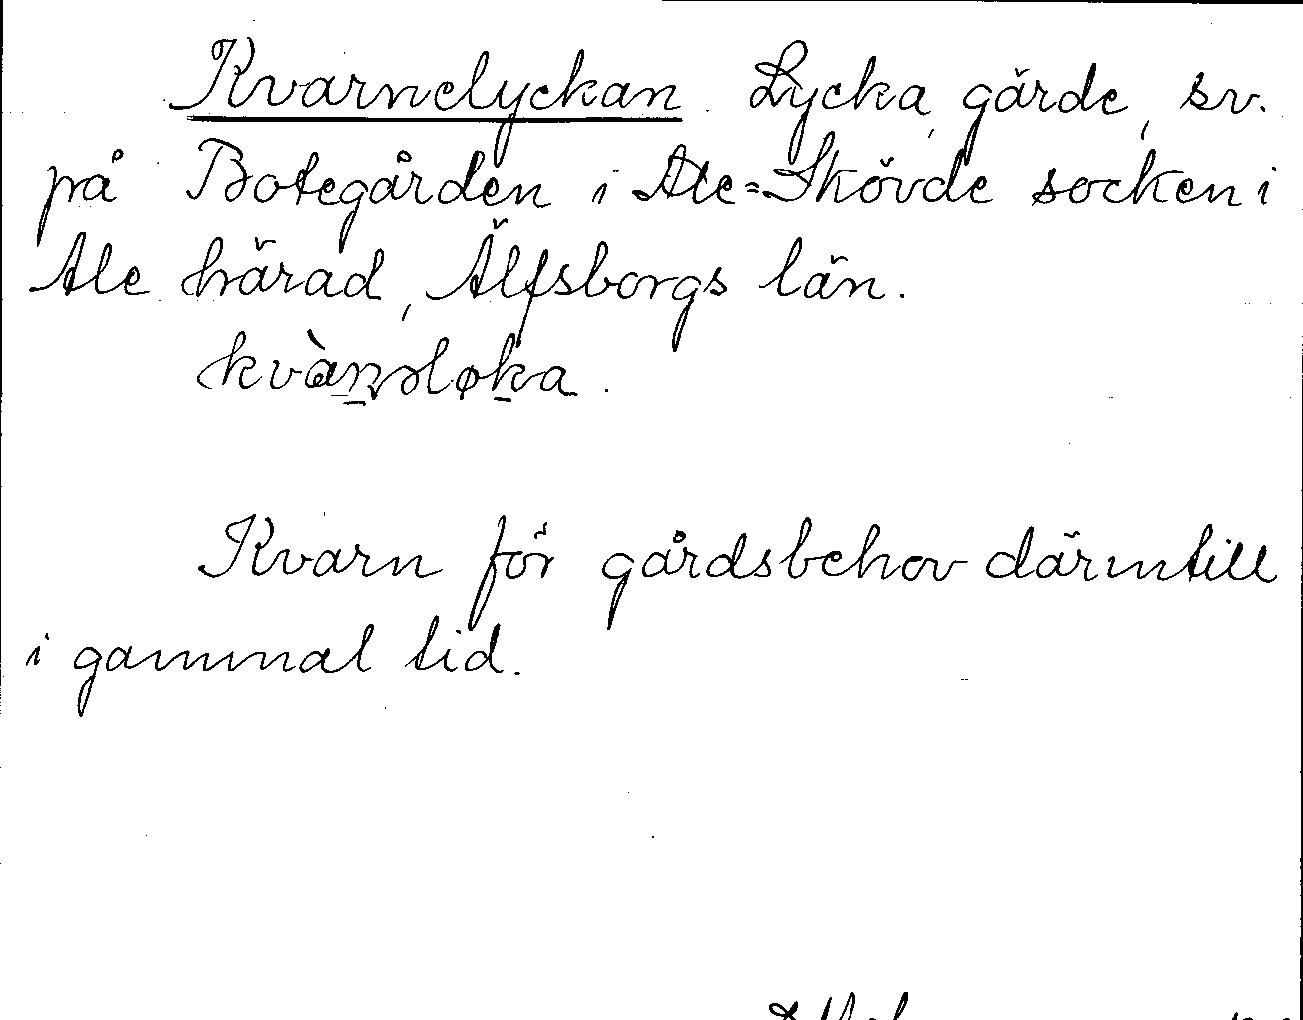 Kvarnelyckan. Lycka, gärde, sv.
på Botegården i Ale-Skövde socken i
Ale härad, Älfsborgs län.
kvàɳəløka.
Kvarn för gårdsbehov därintill
i gammal tid.